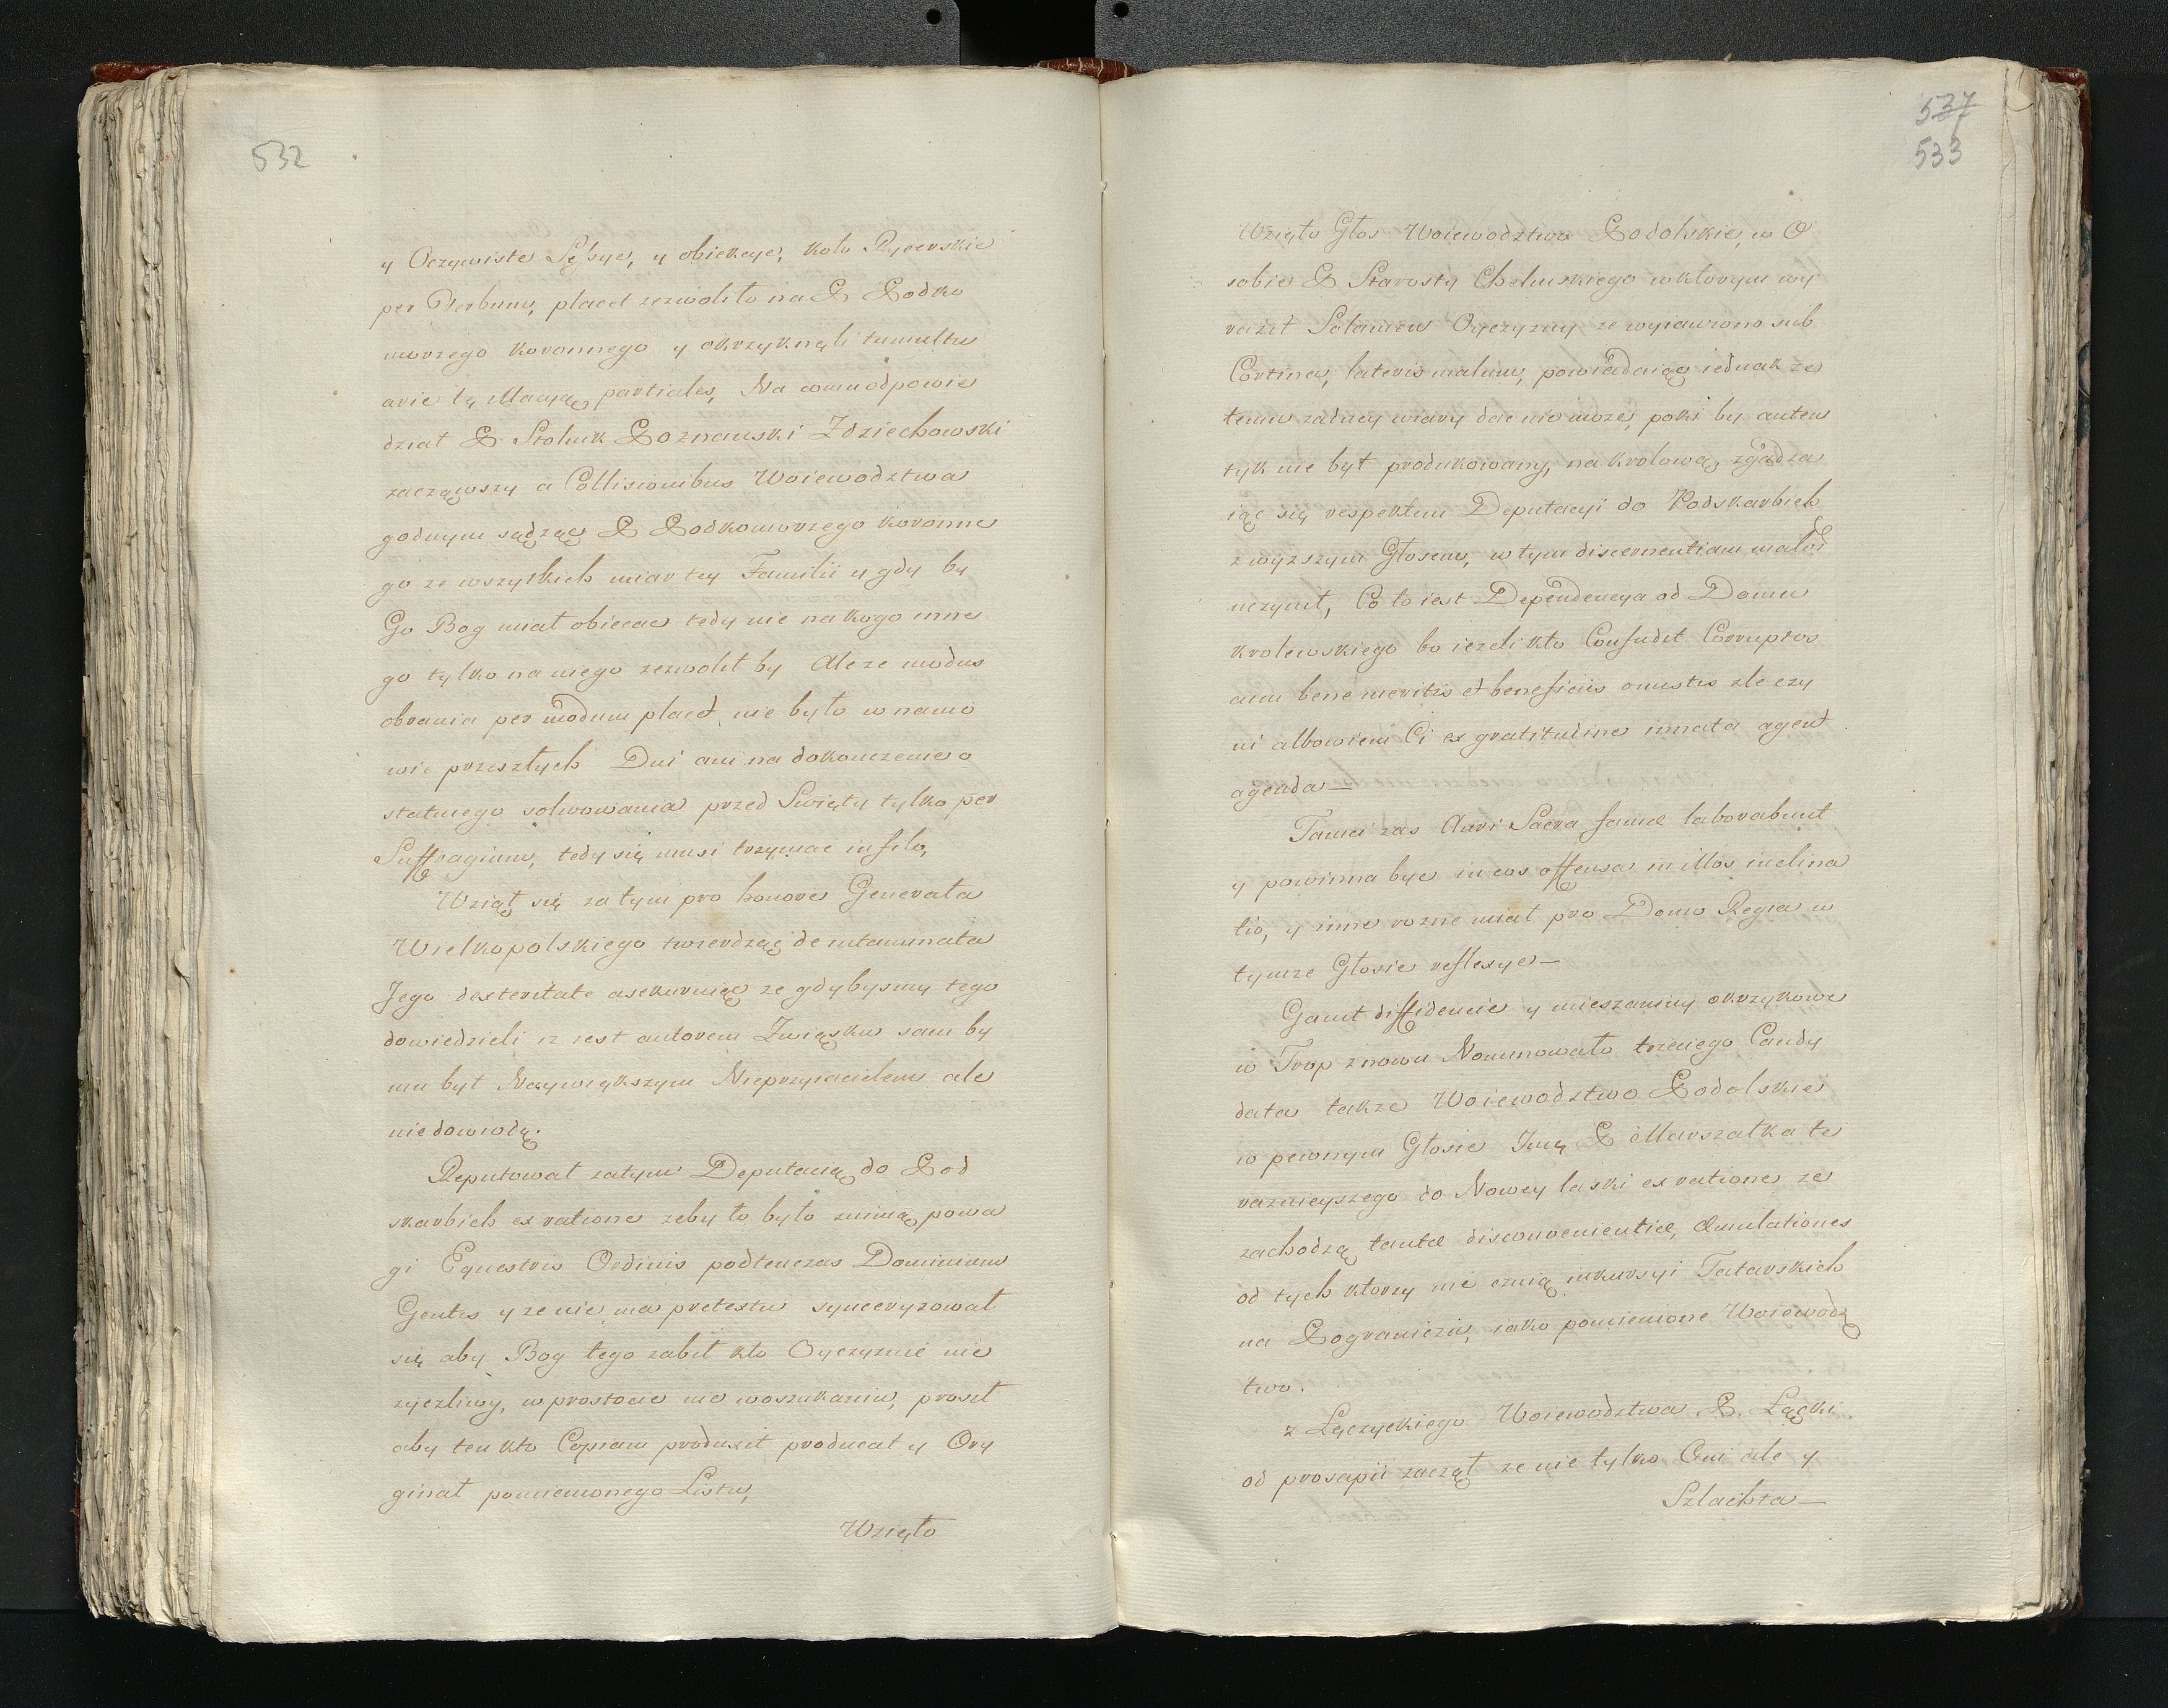 532
y Oczywiste Sessye, y obiekcye, koło Rycerskie
per Verbum, placet zezwoliło na P Podko
morzego koronnego y okrzyknęli tumultu
arie tę Macyą partiales, Na co mu odpowie
dział P. Stolnik Poznanski Zdziechowski
zacząwszy a Collisionibus Woiewodztwa
godnym sądząc P Podkomorzego koronne
go ze wszytkich miar tey Familii y gdy by
Go Bog miał obiecac tedy nie na kogo inne
go tylko na niego zezwolił by Ale ze modus
obrania per modum placet, nie było w namo
wie przeszłych Dni ani na dokonczenie o
statniego solwowania przed Swięty tylko per
Suffragium, tedy się musi trzymac in filo,
Wziął się za tym pro honore Generała
Wielkopolskiego twierdząc de intaminata
Jego dexteritate asekuruiąc ze gdybysmy tego
dowiedzieli iz iest autorem Związku sam by
mu był Naywiększym Nieprzyiacielem ale
nie dowiodą.
Reputował zatym Deputacią do Pod
skarbich ex ratione zeby to było zniną powa
gi Equestris Ordinis podtenczas Dominium
Gentis y ze nie ma pretextu synceryzował
się aby Bog tego zabił kto Oyczyznie nie
zyczliwy, w prostocie nie w oszukaniu, prosił
aby ten kto Copiam produxit producat y Ory
ginał pomienionego Listu,
Wzięło
537
533
Wzięło Głos Woiewodztwo Podolskie, w O
sobie P Starosty Chełmskiego w ktorym wy
raził Solamen Oyczyzny ze wyiawiono sub
Cortina, lateris malum, powiadaiąc iednak ze
temu zadney wiary dac nie moze, poki by auten
tyk nie był produkowany, na krolową, zgadza
iąc się respektem Deputacyi do Podskarbich
z wyzszym Głosem, w tym discernentiam malos
uczynił, Co to iest Dependencya od Domu
krolewskiego bo iezeli kto Confudit Corruptos
cum bene meritis et beneficiis onustis zle czy
ni albowiem Ci ex gratitudine innata agent
agenda —
Tamci zas Auri Sacra famæ laborabunt
y powinna byc in eos offensa in illos inclina
tio, y inne rozne miał pro Domo Regia w
tymze Głosie reflexye —
Ganił diffidencie y mieszaniny okrzykowe
w Trop znowu Nominowało trzeciego Candy
data takze Woiewodztwo Podolskie
w pewnym Głosie Imę P Marszałka te
raznieyszego do Nowey laski ex ratione ze
zachodzą tantæ disconvenientiæ, Æmulationes
od tych ktorzy nie czuią inkursyi Tatarskich
na Pograniczu, iako pomienione Woiewodz
two.
z Łęczyckiego Woiewodztwa P. Łącki
od prosapii zaczął ze nie tylko Oni ale y
Szlachta —